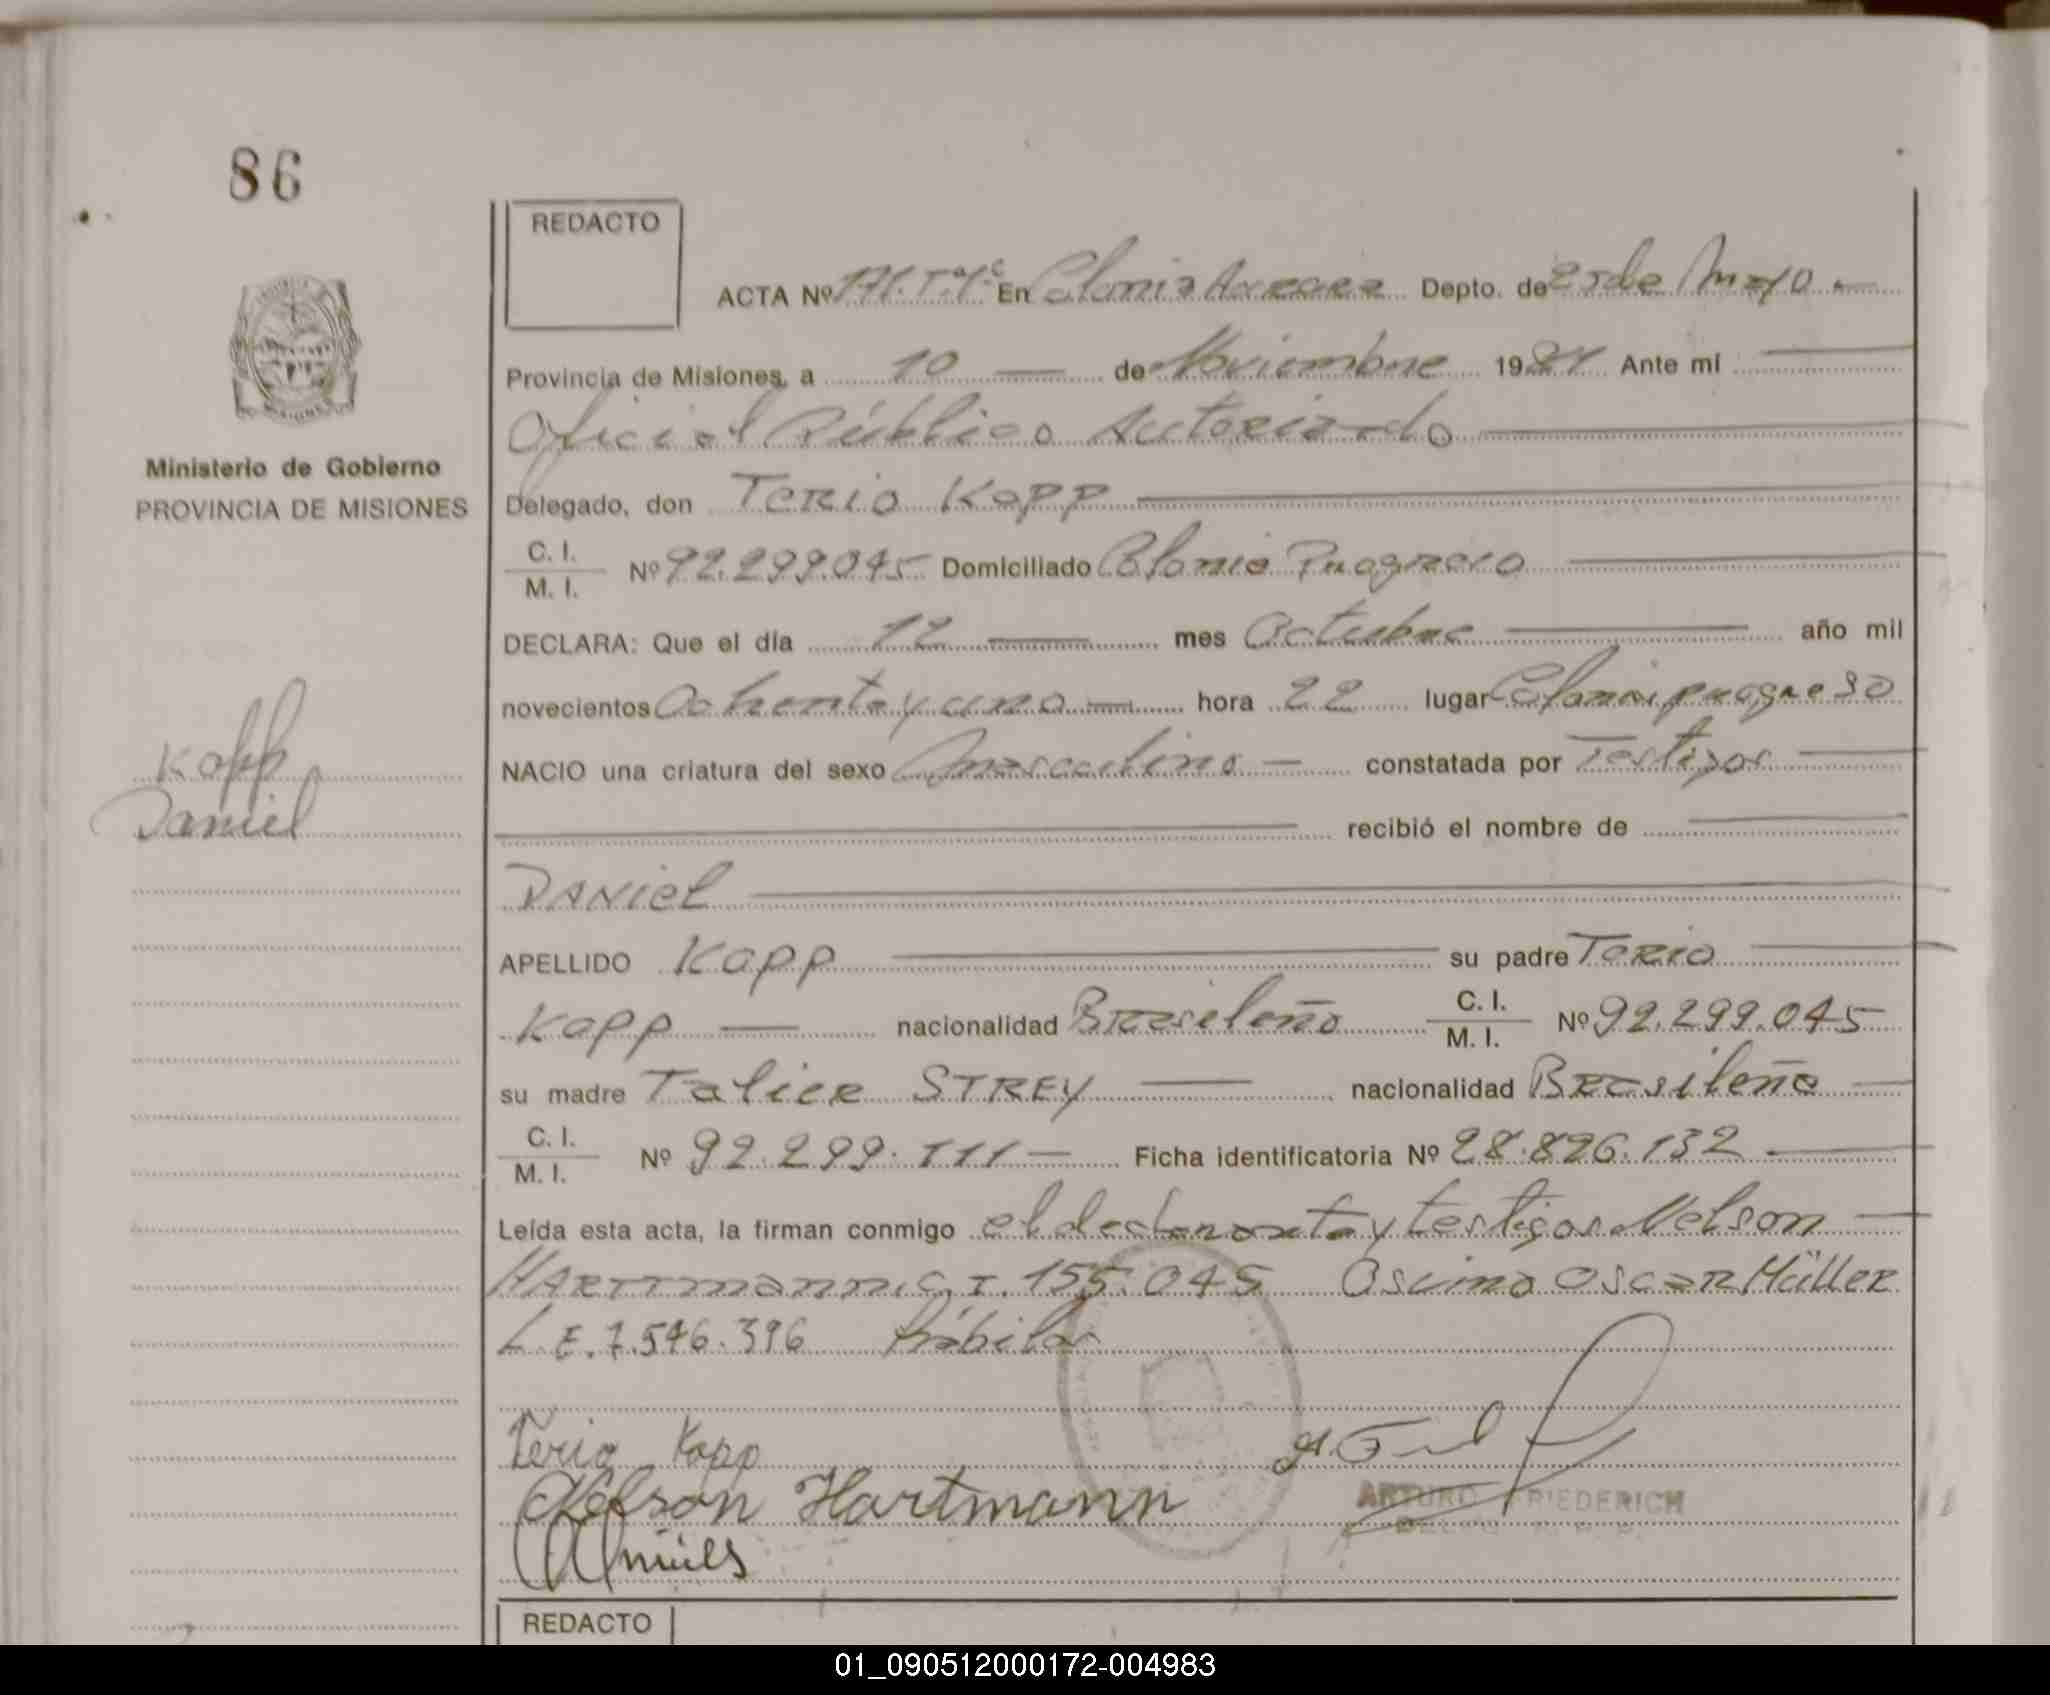 86
REDACTO
ACTA Nº 171. Tº 1º En Colonia Aurora Depto. de 25 de Mayo
Provincia de Misiones, a 10 de Noviembre 1981 Ante mí
Oficial Público Autorizado
Ministerio de Gobierno
PROVINCIA DE MISIONES
Delegado, don Terio Kopp
C. I.
M. I. Nº 92.299.045 Domiciliado Colonia Progreso
DECLARA: Que el día 12 mes Octubre año mil
novecientos Ochenta y uno hora 22 lugar Colonia progreso
NACIO una criatura del sexo Masculino constatada por Testigos
Kopp
Daniel
recibió el nombre de
DANIEL
APELLIDO Kopp su padre Terio
Kopp nacionalidad Brasileño C. I.
M. I. Nº 92.299.045
su madre Talice STREY nacionalidad Brasileña
C. I.
M. I. Nº 92.299.111 Ficha identificatoria Nº 28.826.132
Leída esta acta, la firman conmigo el declarante y testigos Nelson
HARTTmann C.I. 155.045 Oscar Müller
L.E. 7.546.396 hábiles
Terio Kopp
Nelson Hartmann
ARTURO FRIEDERICH
REDACTO
01_090512000172-004983